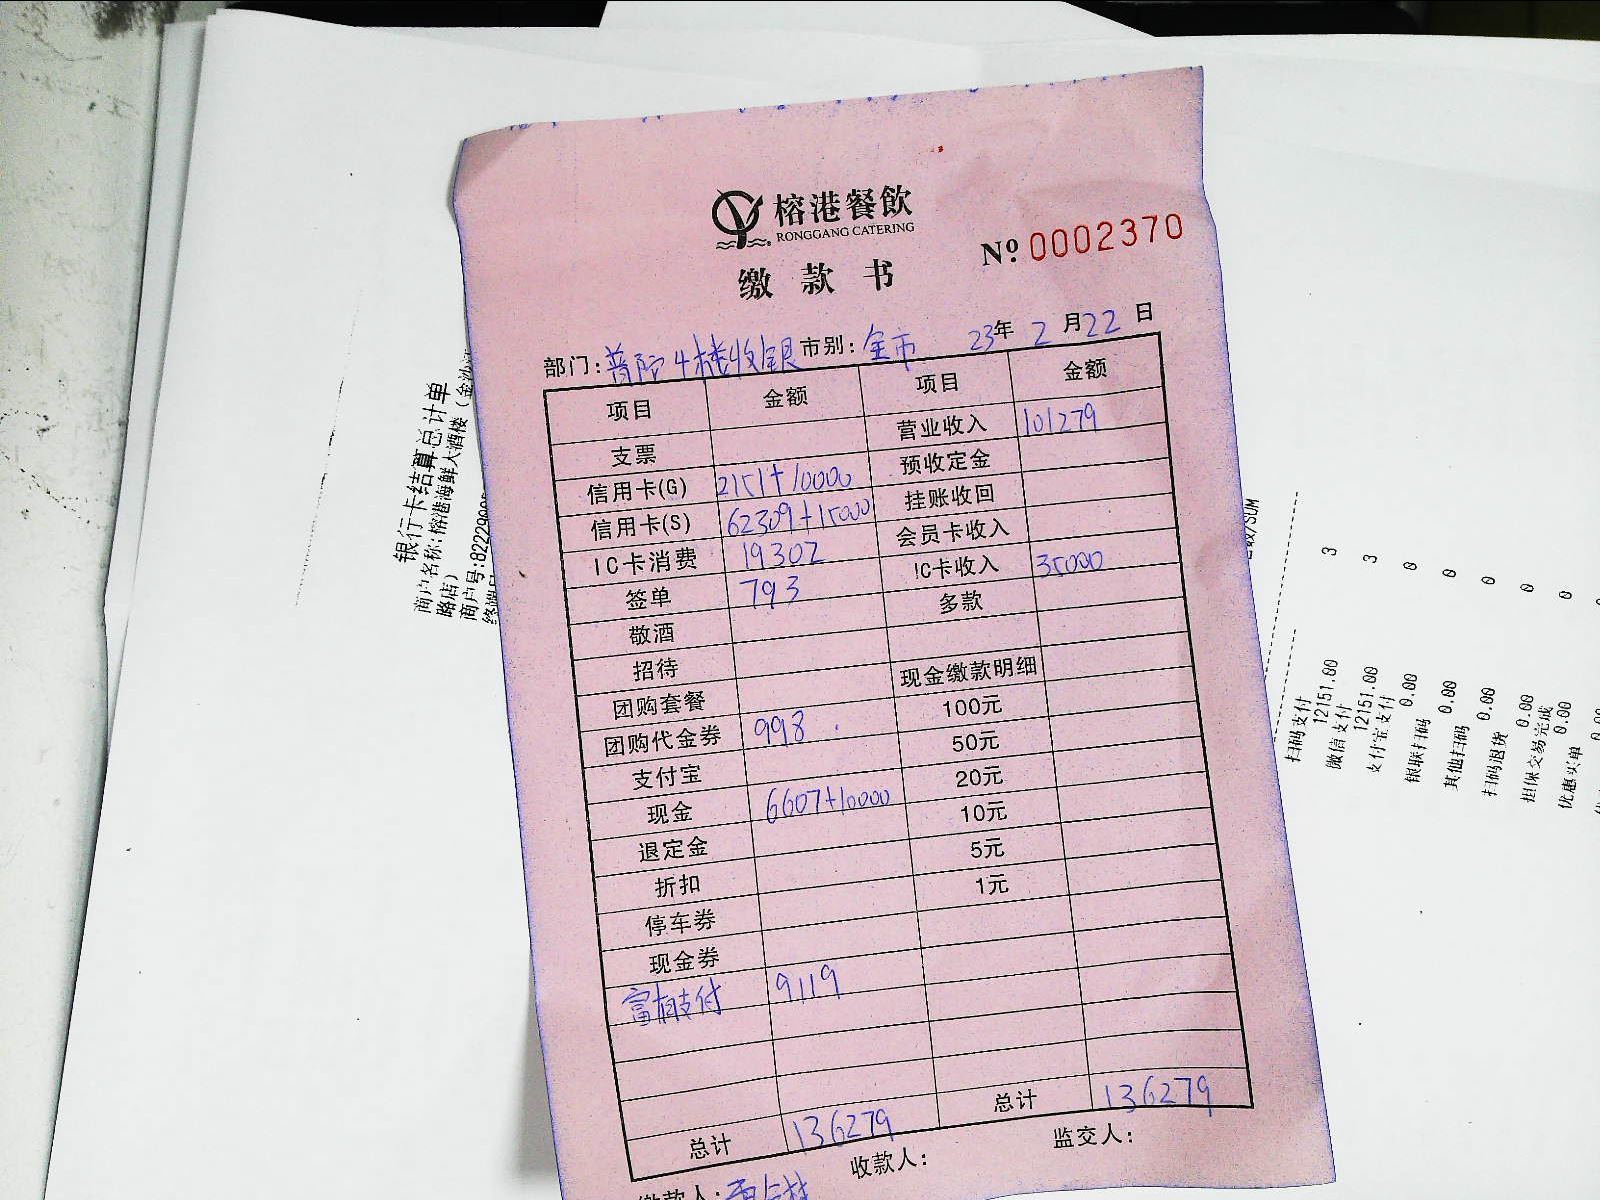 榕港餐飲
RONGGANG CATERING
缴款书
№ 0002370
部门: 普陀4楼收银 市别: 全市 23年 2月22日
项目 金额 项目 金额
支票 营业收入 101279
信用卡(G) 2151+10000 预收定金
信用卡(S) 62309+15000 挂账收回
IC卡消费 19302 会员卡收入
签单 793 IC卡收入 35000
敬酒 多款
招待
团购套餐 现金缴款明细
团购代金券 998 100元
支付宝 50元
现金 6607+10000 20元
退定金 10元
折扣 5元
停车券 1元
现金券
富有支付 9119
总计 136279 总计 136279
收款人: 监交人:
缴款人:
银行卡结算总计单
商户名称:榕港海鲜大酒楼(金沙
路店)
商户号:822290
/SUM
扫码支付 3
12151.00
微信支付 3
12151.00
支付宝支付 0
0.00
银联扫码 0
0.00
其他扫码 0
0.00
扫码退货 0
0.00
担保交易完成 0
0.00
优惠买单
0.00